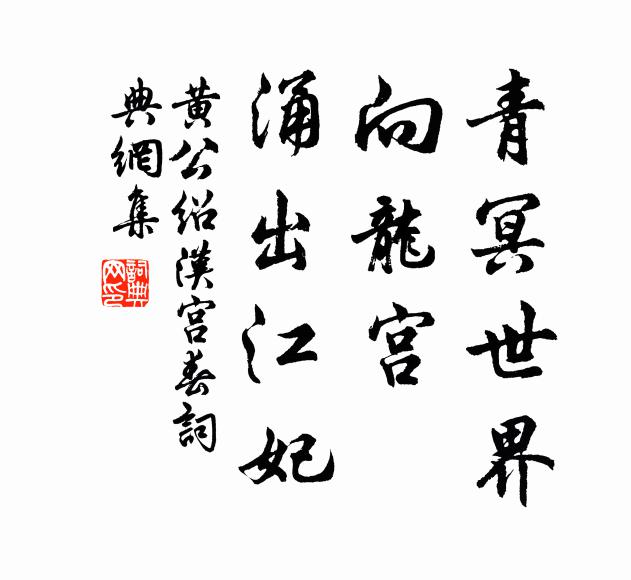 青冥世界
向龍宮
涌出江妃
黄公紹漢宮春詞
典網集
詞典網印